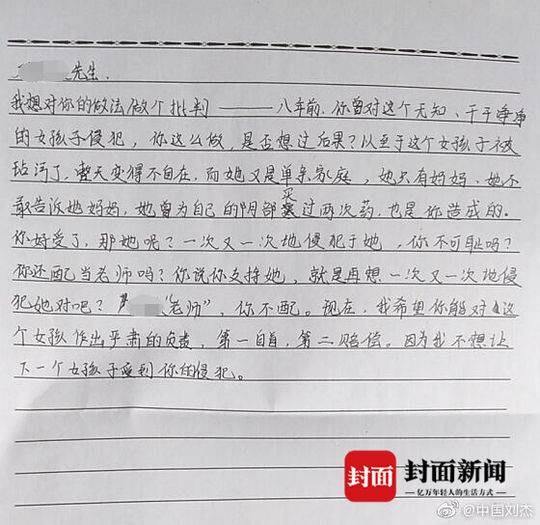 先生.
我想对你的做法做个批判——八年前.你曾对这个无知、干干净净
的女孩子侵犯，你这么做，是否想过后果？以至于这个女孩子被
玷污了，整天变得不自在，而她又是单亲家庭，她只有妈妈、她不
敢告诉她妈妈，她曾为自己的阴部买过两次药，也是你造成的。
你好受了，那她呢？一次又一次地侵犯于她，你不可耻吗？
你还配当老师吗？你说你支持她，就是再想一次又一次地侵
犯她对吧？ “老师”，你不配。现在，我希望你能对这
个女孩作出严肃的负责，第一自首，第二赔偿。因为我不想让
下一个女孩子受到你的侵犯。
封面 封面新闻
亿万年轻人的生活方式
@中国刘杰